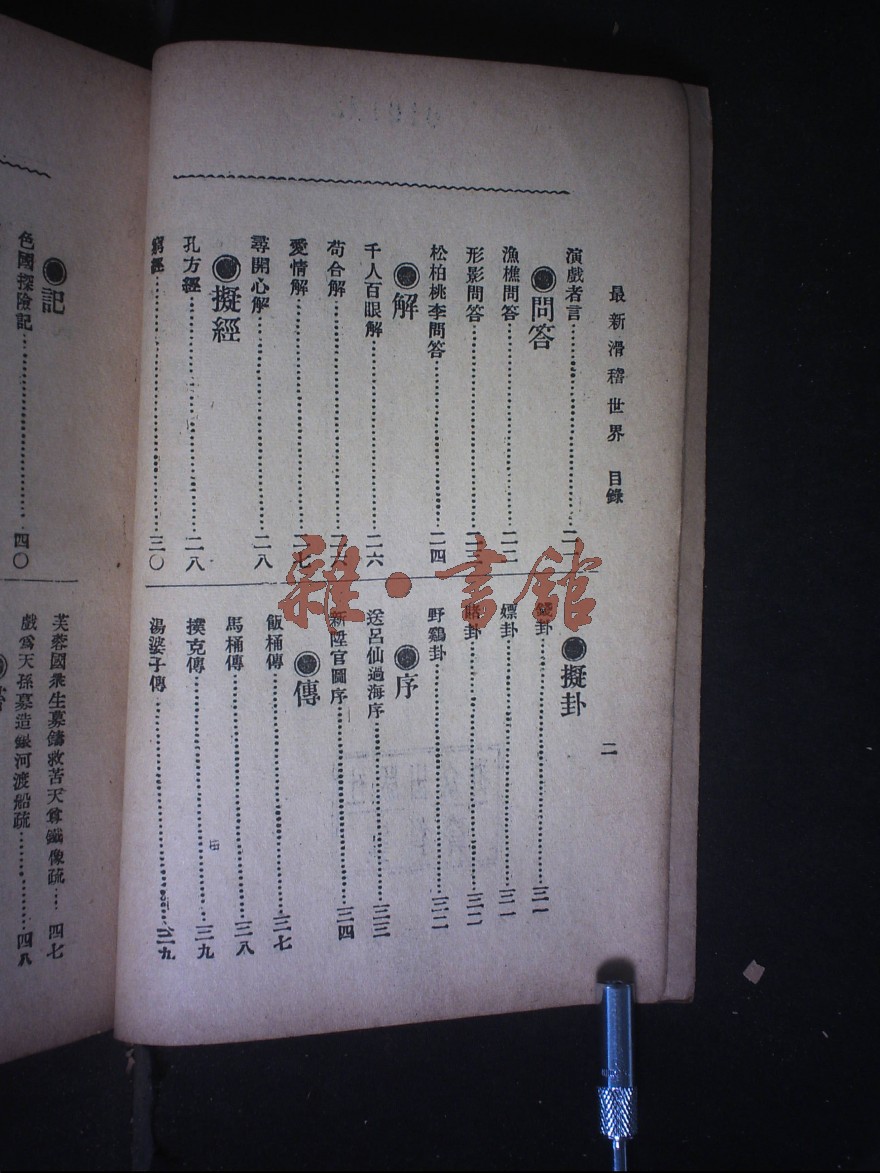 最新滑稽世界 目錄
二
演戲者言
●問答
漁樵問答……二二
形影問答……二三
松柏桃李問答……二四
●解
千人百眼解……二六
苟合解……二六
愛情解……二七
尋開心解……二八
●擬經
孔方經……二八
窮經……三〇
●擬卦
錢卦……三一
嫖卦……三一
賭卦……三二
野鷄卦……三二
●序
送呂仙過海序……三三
新陞官圖序……三四
●傳
飯桶傳……三七
馬桶傳……三八
撲克傳……三九
湯婆子傳……三九
●記
色國探險記……四〇
芙蓉國衆生募鑄救苦天尊鐵像疏……四七
戲爲天孫募造銀河渡船疏……四八
雜·書館